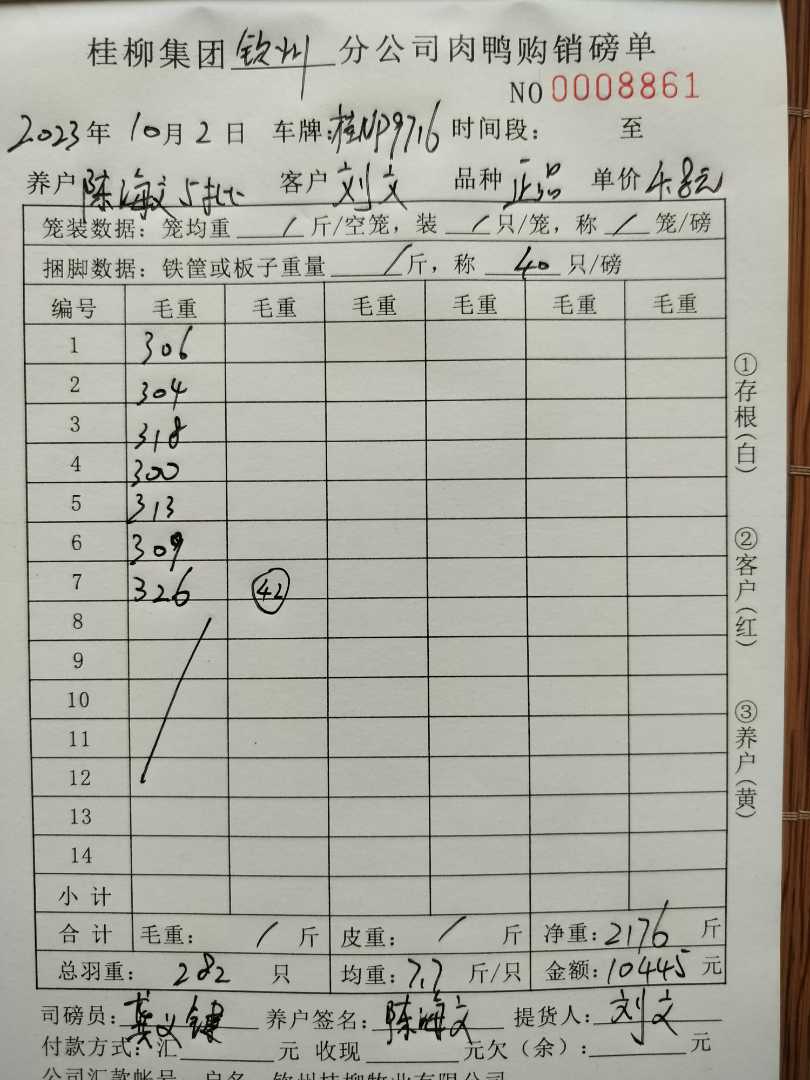 桂柳集团 钦州 分公司肉鸭购销磅单
NO 0008861
2023年 10月 2日 车牌: 桂NP9716 时间段: 至
养户 陈海文 5批 客户 刘文 品种 正品 单价 4.8元
笼装数据: 笼均重 / 斤/空笼, 装 / 只/笼, 称 / 笼/磅
捆脚数据: 铁筐或板子重量 / 斤, 称 40 只/磅
编号 毛重 毛重 毛重 毛重 毛重 毛重
1 306
2 304
3 318
4 300
5 313
6 309
7 326 42
8
9
10
11
12
13
14
小计
合计 毛重: / 斤 皮重: / 斤 净重: 2176 斤
总羽重: 282 只 均重: 7.7 斤/只 金额: 10445 元
司磅员: 龚义键 养户签名: 陈海文 提货人: 刘文
付款方式: 汇 元 收现 元欠(余): 元
公司汇款帐号 户名 钦州桂柳牧业有限公司
①存根(白)
②客户(红)
③养户(黄)